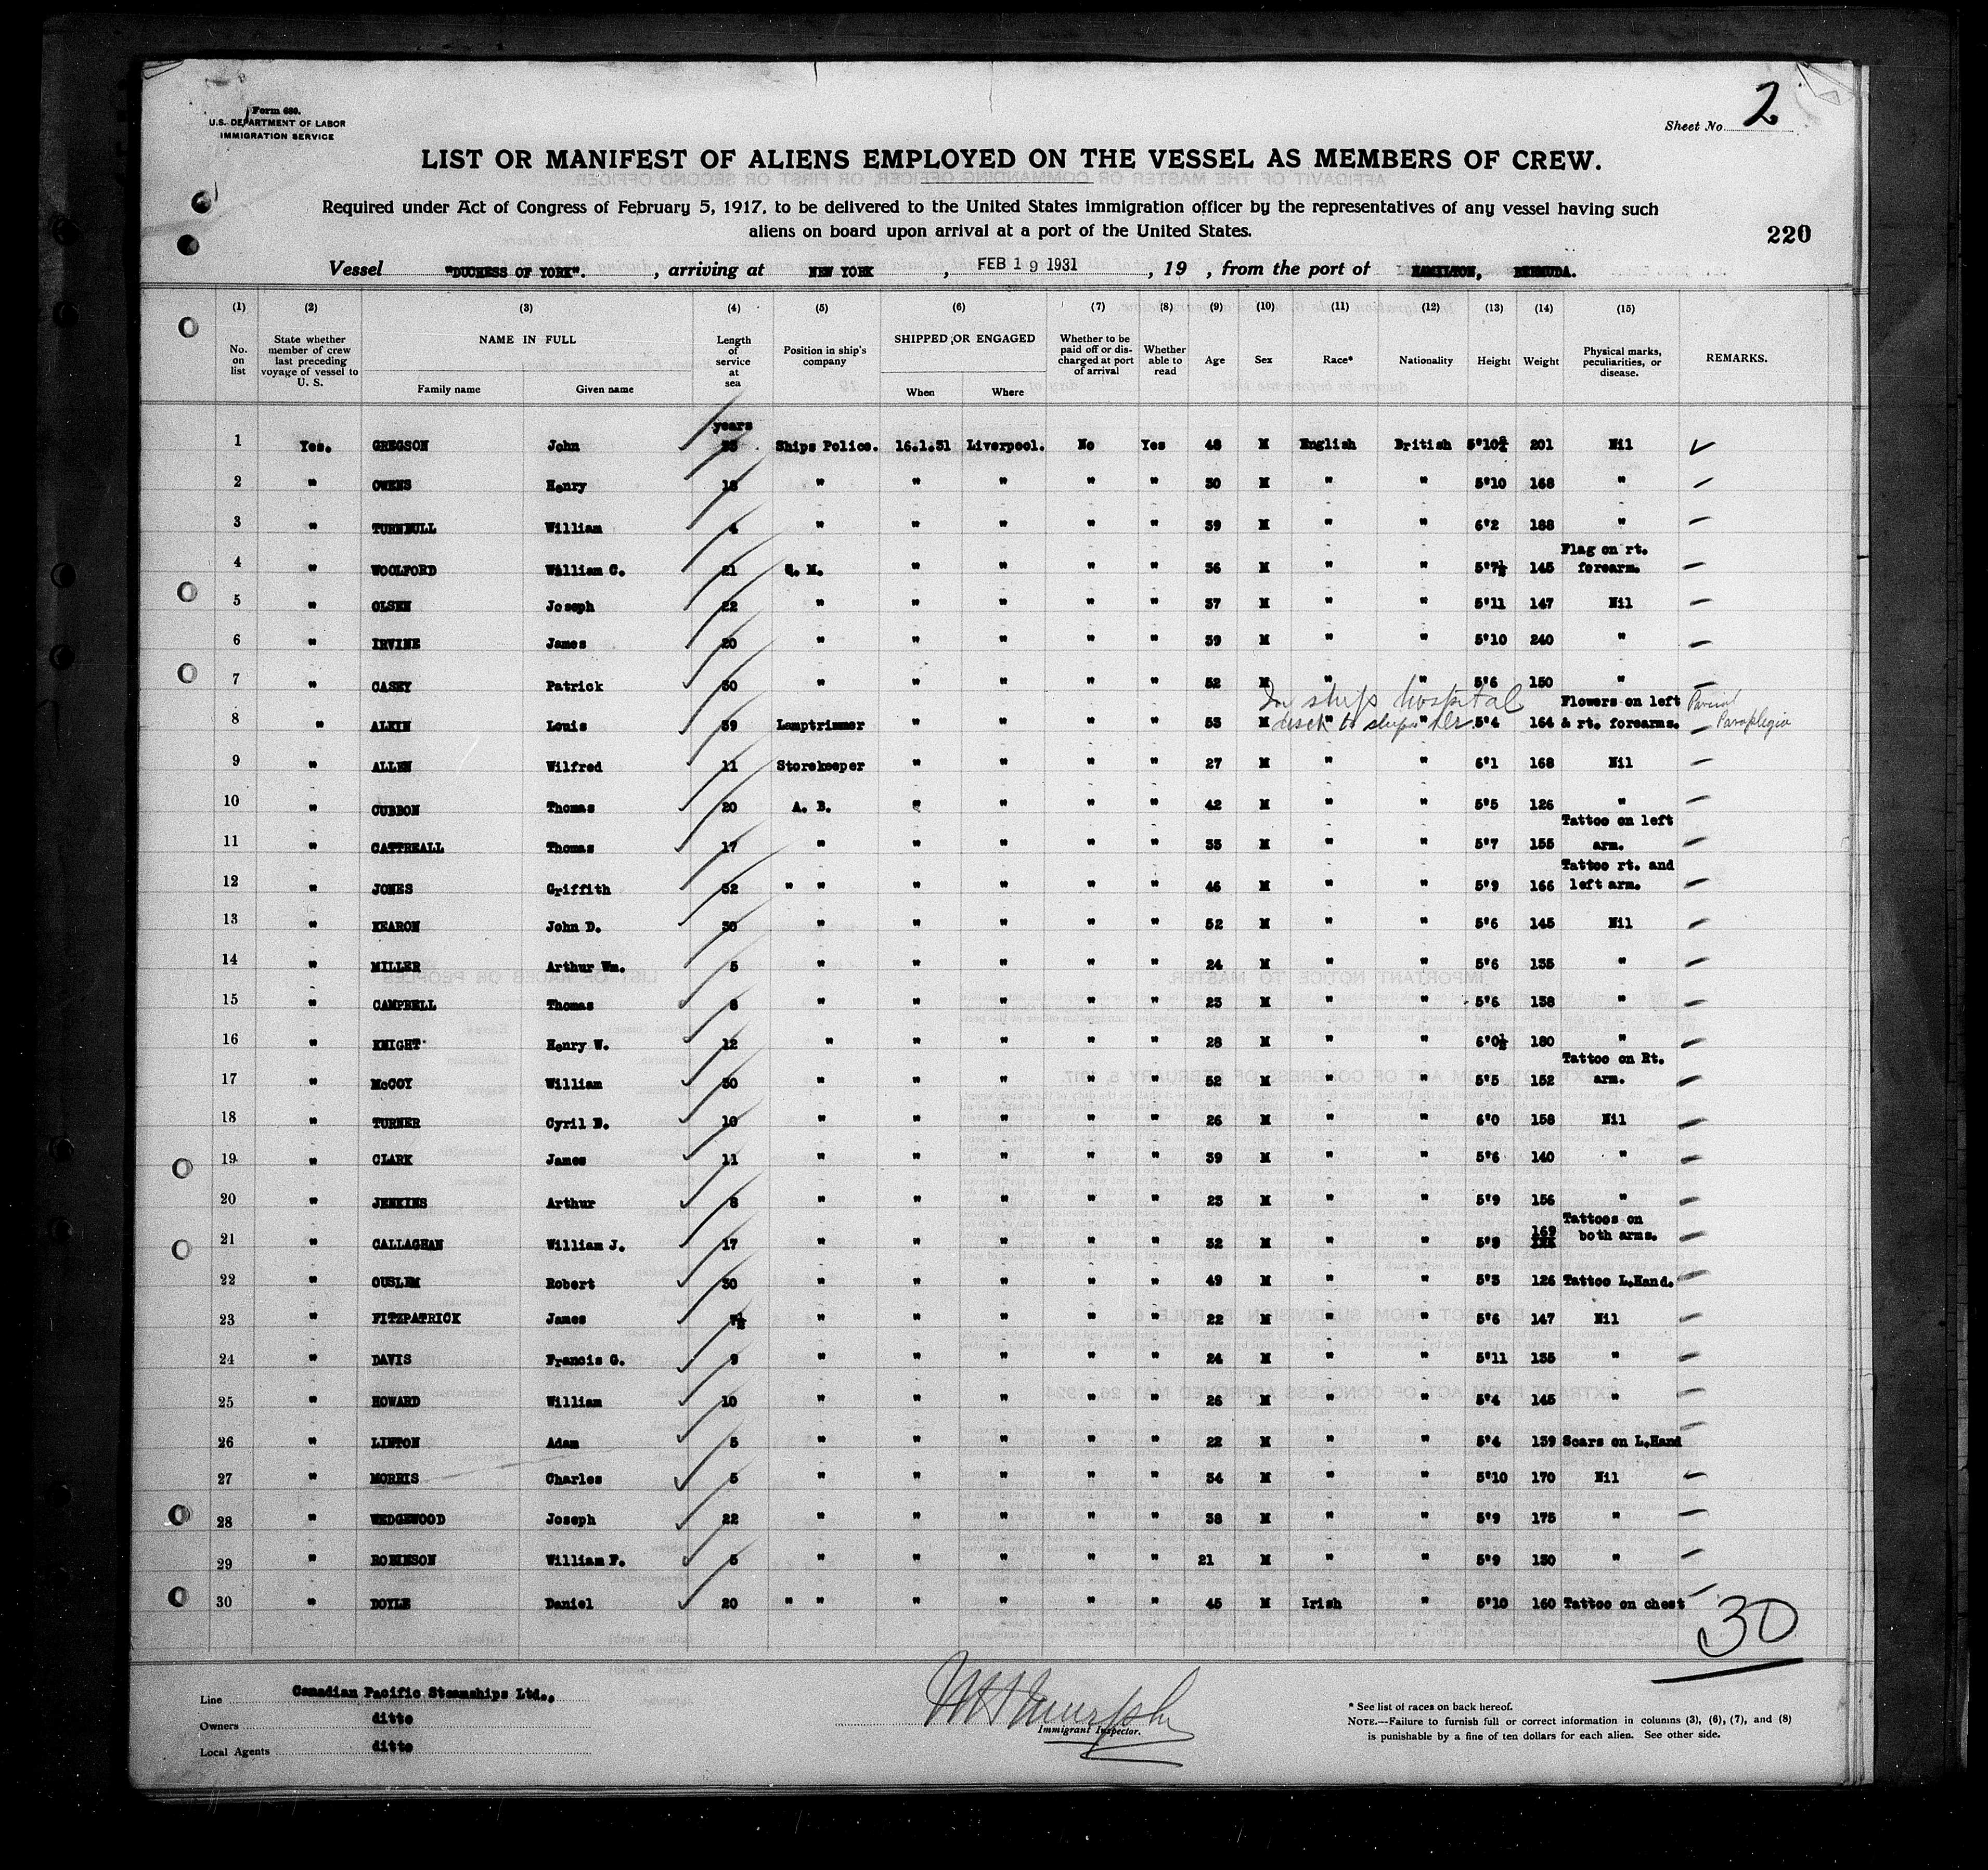 Form 680.
U.S. DEPARTMENT OF LABOR
IMMIGRATION SERVICE
Sheet No. 2
LIST OR MANIFEST OF ALIENS EMPLOYED ON THE VESSEL AS MEMBERS OF CREW.
Required under Act of Congress of February 5, 1917, to be delivered to the United States immigration officer by the representatives of any vessel having such
aliens on board upon arrival at a port of the United States.
220
Vessel "DUCHESS OF YORK". , arriving at NEW YORK , FEB 19 1931 , 19 , from the port of HAMILTON, BERMUDA.
(1) (2) (3) (4) (5) (6) (7) (8) (9) (10) (11) (12) (13) (14) (15)
No. on list
State whether member of crew last preceding voyage of vessel to U. S.
NAME IN FULL
Family name Given name
Length of service at sea
Position in ship's company
SHIPPED OR ENGAGED
When Where
Whether to be paid off or discharged at port of arrival
Whether able to read
Age Sex Race* Nationality Height Weight
Physical marks, peculiarities, or disease.
REMARKS.
years
1 Yes. GREGSON John Ships Police. 16.1.31 Liverpool. No Yes 48 M English British 5'10¾ 201 Nil
2 " OWENS Henry 18 " " " " " 30 M " " 5'10 168 "
3 " TURNBULL William 4 " " " " " 39 M " " 6'2 188 "
4 " WOOLFORD William C. 21 Q. M. " " " " 36 M " " 5'7½ 145 Flag on rt. forearm.
5 " OLSEN Joseph 22 " " " " " 37 M " " 5'11 147 Nil
6 " IRVINE James 20 " " " " " 39 M " " 5'10 240 "
7 " CASEY Patrick 30 " " " " " 52 M " " 5'6 150 "
In ships hospital
8 " ALKIN Louis 39 Lamptrimmer " " " " 53 M " " 5'4 164 Flowers on left & rt. forearms. Paraplegia
9 " ALLEN Wilfred 11 Storekeeper " " " " 27 M " " 6'1 168 Nil
10 " CUBBON Thomas 20 A. B. " " " " 42 M " " 5'5 126 "
11 " CATTREALL Thomas 17 " " " " " 35 M " " 5'7 155 Tattoo on left arm.
12 " JONES Griffith 32 " " " " " " 46 M " " 5'9 166 Tattoo rt. and left arm.
13 " KEARON John D. 30 " " " " " 52 M " " 5'6 145 Nil
14 " MILLER Arthur Wm. 5 " " " " " 24 M " " 5'6 135 "
15 " CAMPBELL Thomas 8 " " " " " 23 M " " 5'6 138 "
16 " KNIGHT Henry W. 12 " " " " " 28 M " " 6'0½ 180 "
17 " McCOY William 30 " " " " " 52 M " " 5'5 152 Tattoo on Rt. arm.
18 " TURNER Cyril E. 10 " " " " " 26 M " " 6'0 158 Nil
19 " CLARK James 11 " " " " " 39 M " " 5'6 140 "
20 " JENKINS Arthur 8 " " " " " 23 M " " 5'9 156 "
21 " CALLAGHAN William J. 17 " " " " " 32 M " " 5'8 169 Tattoos on both arms.
22 " OUSLEM Robert 30 " " " " " 49 M " " 5'3 126 Tattoo L.Hand.
23 " FITZPATRICK James 7½ " " " " " 22 M " " 5'6 147 Nil
24 " DAVIS Francis G. 9 " " " " " 24 M " " 5'11 135 "
25 " HOWARD William 10 " " " " " 26 M " " 5'4 145 "
26 " LINTON Adam 5 " " " " " 22 M " " 5'4 139 Scars on L.Hand
27 " MORRIS Charles 5 " " " " " 34 M " " 5'10 170 Nil
28 " WEDGEWOOD Joseph 22 " " " " " 38 M " " 5'9 175 "
29 " ROBINSON William F. 5 " " " " " 21 M " " 5'9 130 "
30 " DOYLE Daniel 20 " " " " " " 45 M Irish " 5'10 160 Tattoo on chest
30
Line Canadian Pacific Steamships Ltd.,
Owners ditto
Local Agents ditto
Immigrant Inspector.
* See list of races on back hereof.
NOTE.—Failure to furnish full or correct information in columns (3), (6), (7), and (8)
is punishable by a fine of ten dollars for each alien. See other side.